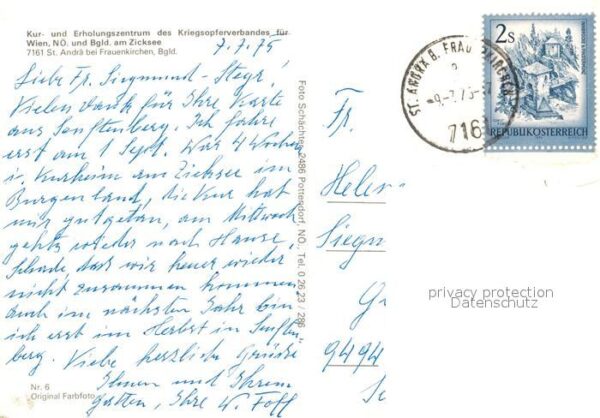 Kur- und Erholungszentrum des Kriegsopferverbandes für
Wien, NÖ. und Bgld. am Zicksee
7161 St. Andrä bei Frauenkirchen, Bgld.
7.7.75
Liebe Fr. Siegmund-Stegr!
Vielen Dank für Ihre Karte
aus Senftenberg. Ich fahre
erst am 1 Sept. War 4 Wochen
i. Kurheim am Zicksee im
Burgenland, die Kur hat
mir gut getan, am Mittwoch
gehts wieder nach Hause,
Schade, dass wir heuer wieder
nicht zusammen kommen,
auch im nächsten Jahr bin
ich erst im Herbst in Senften-
berg. Viele herzliche Grüße
Ihnen und Ihrem
Gatten, Ihre
Nr. 6
Original Farbfoto
Foto Schächter, 2486 Pottendorf, NÖ., Tel. 0 26 23 / 286
ST. ANDRÄ B. FRAUENKIRCHEN
-9.-7.75-
7161
2s
REPUBLIK ÖSTERREICH
Fr.
Helen
Siegm
9494
privacy protection
Datenschutz